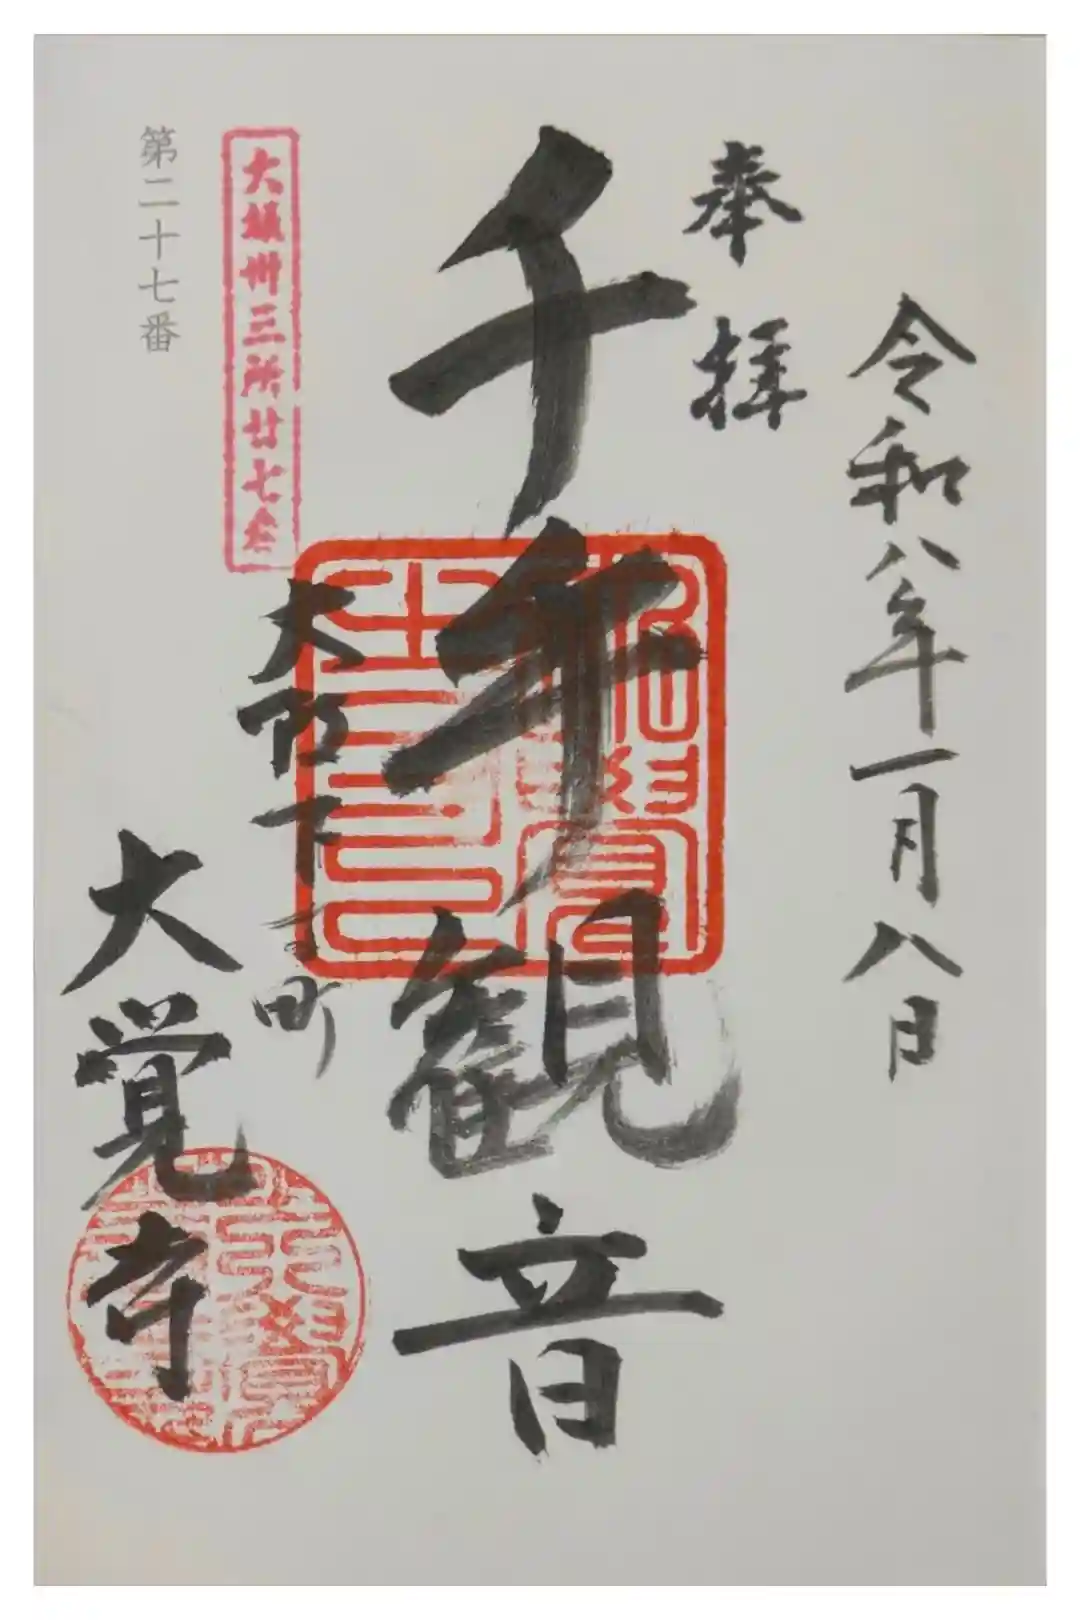 令和八年一月八日
奉拝
千手観音
大阪下寺町
大坂卅三所廿七番
第二十七番
大覚寺